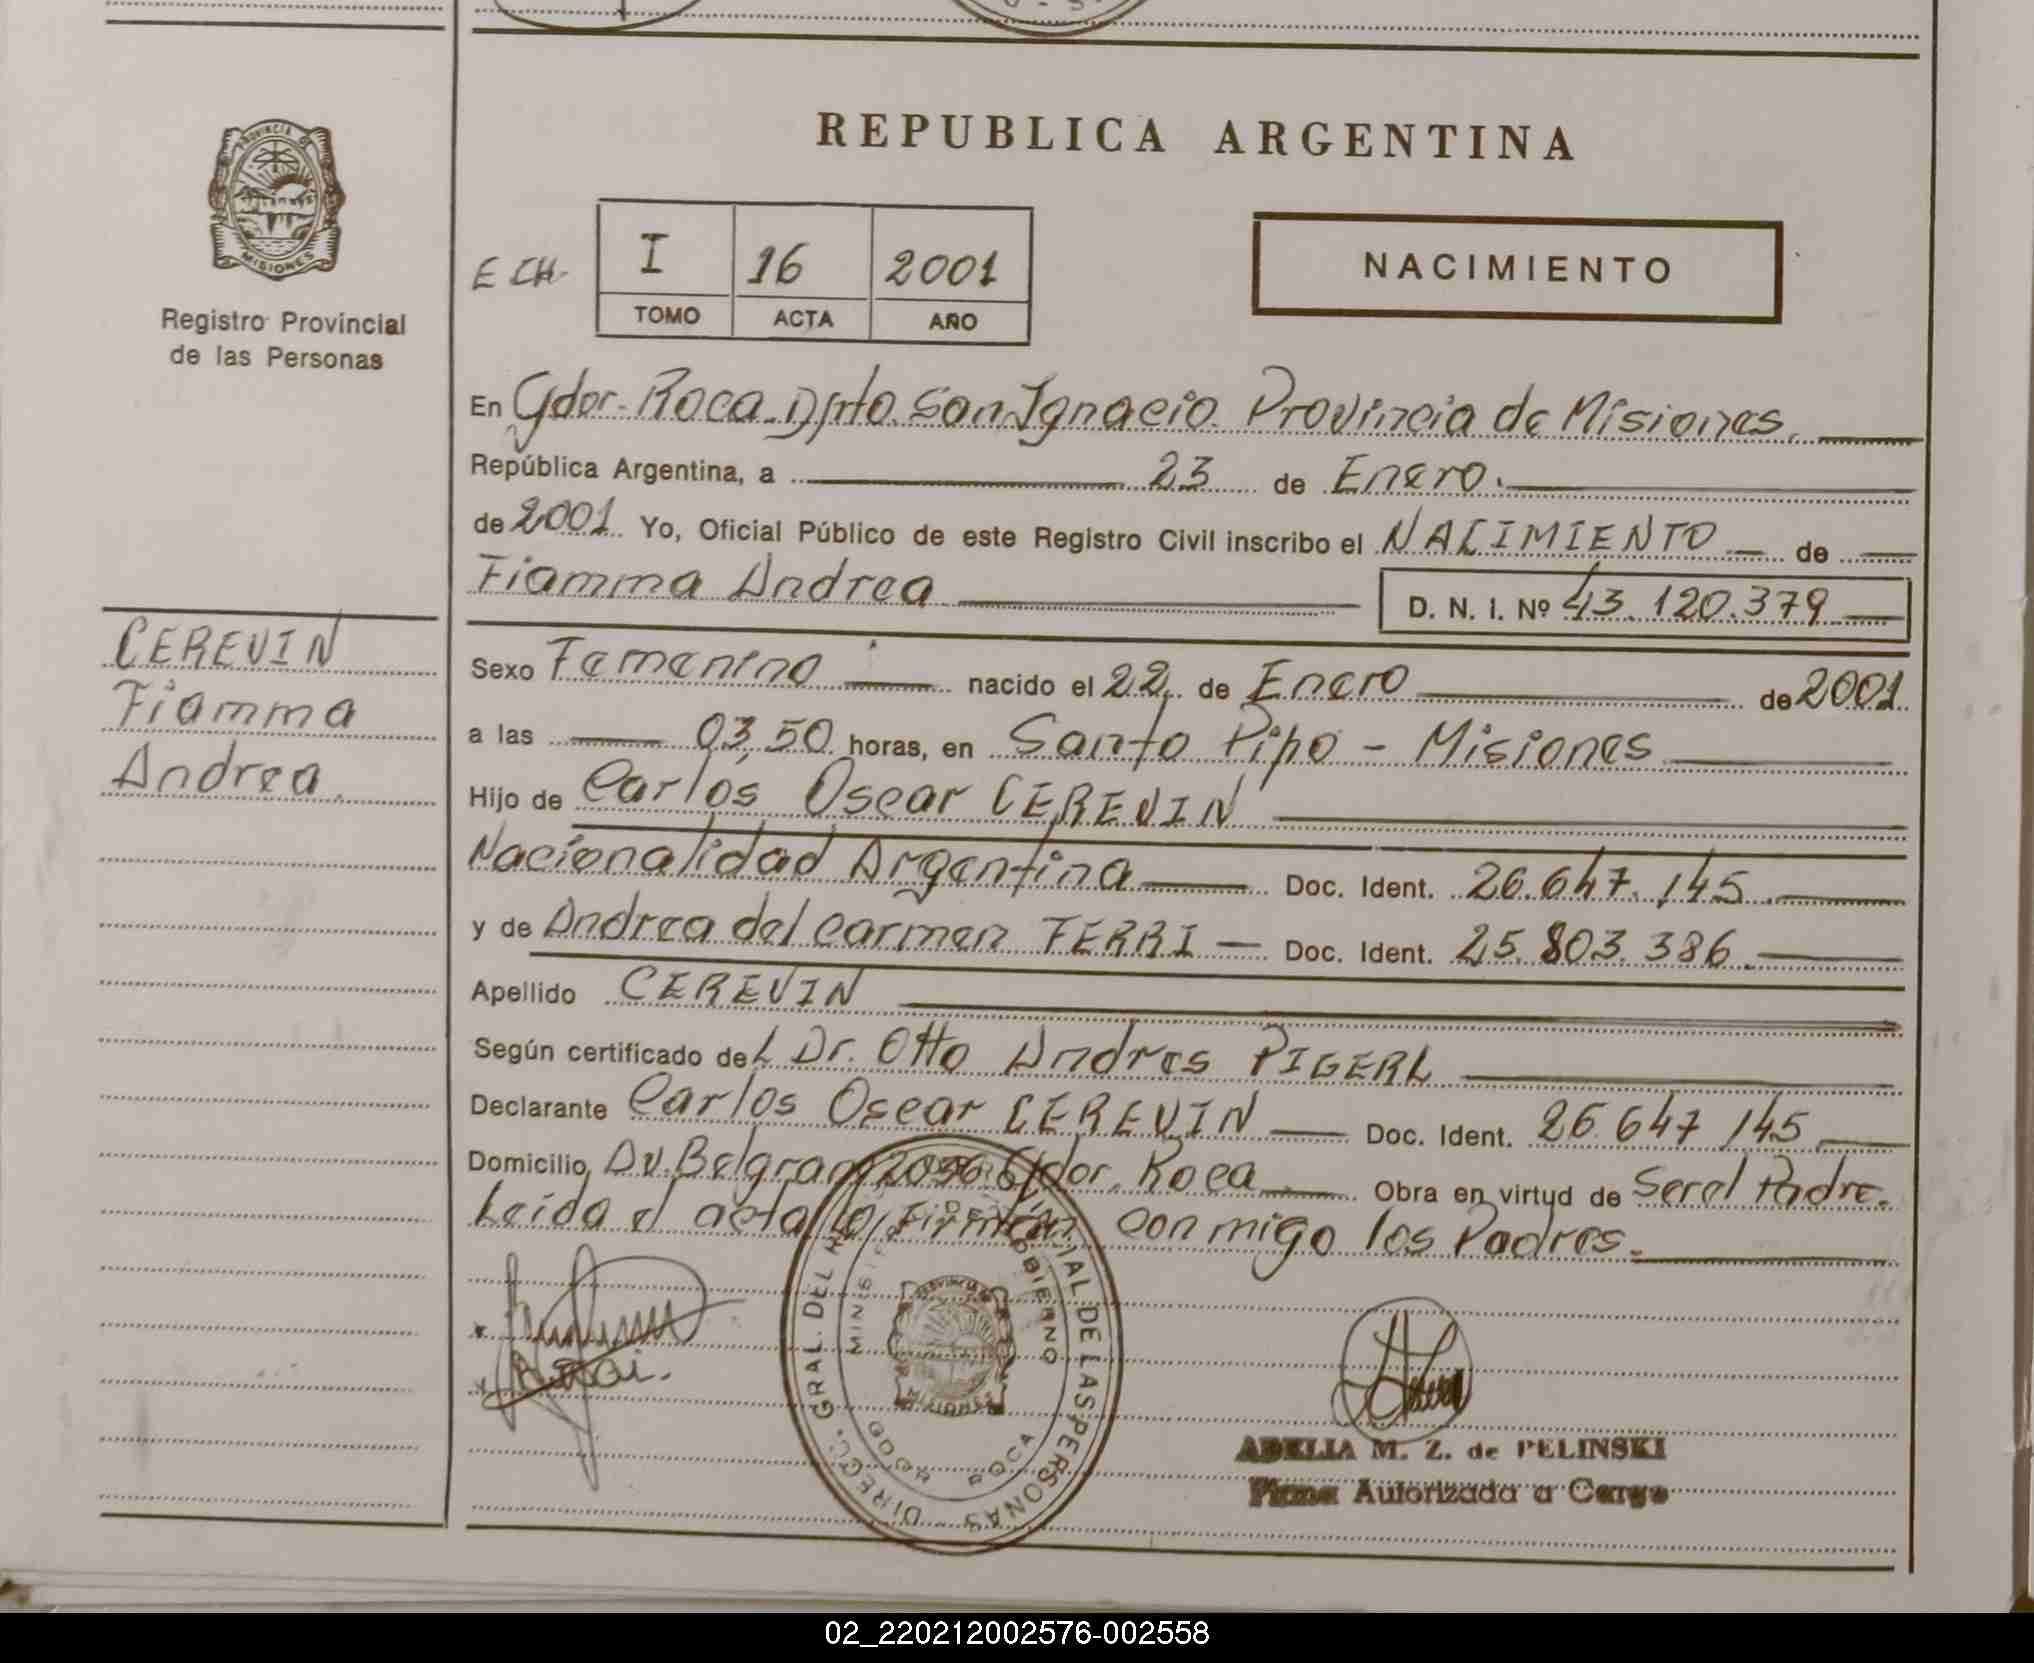 REPUBLICA ARGENTINA
PROVINCIA DE
MISIONES
Registro Provincial
de las Personas
E CH.
I 16 2001
TOMO ACTA AÑO
NACIMIENTO
En Gdor. Roca. Dpto. San Ignacio. Provincia de Misiones.
República Argentina, a 23 de Enero.
de 2001 Yo, Oficial Público de este Registro Civil inscribo el NACIMIENTO de
Fiamma Andrea
D. N. I. Nº 43.120.379
CEREVIN
Fiamma
Andrea.
Sexo Femenino nacido el 22 de Enero de 2001
a las 03,50 horas, en Santo Pipo - Misiones
Hijo de Carlos Oscar CEREVIN
Nacionalidad Argentina Doc. Ident. 26.647.145
y de Andrea del Carmen FERRI Doc. Ident. 25.803.386.
Apellido CEREVIN
Según certificado del Dr. Otto Andres PIGERL
Declarante Carlos Oscar CEREVIN Doc. Ident. 26 647 145
Domicilio Av. Belgrano 2056 Gdor. Roca Obra en virtud de Ser el Padre.
Leída el acta la firman conmigo los Padres.
DIREC. GRAL. DEL DE LAS PERSONAS
GOBIERNO
GDOR. ROCA
ADELIA M. Z. de PELINSKI
Firma Autorizada a Cargo
02_220212002576-002558